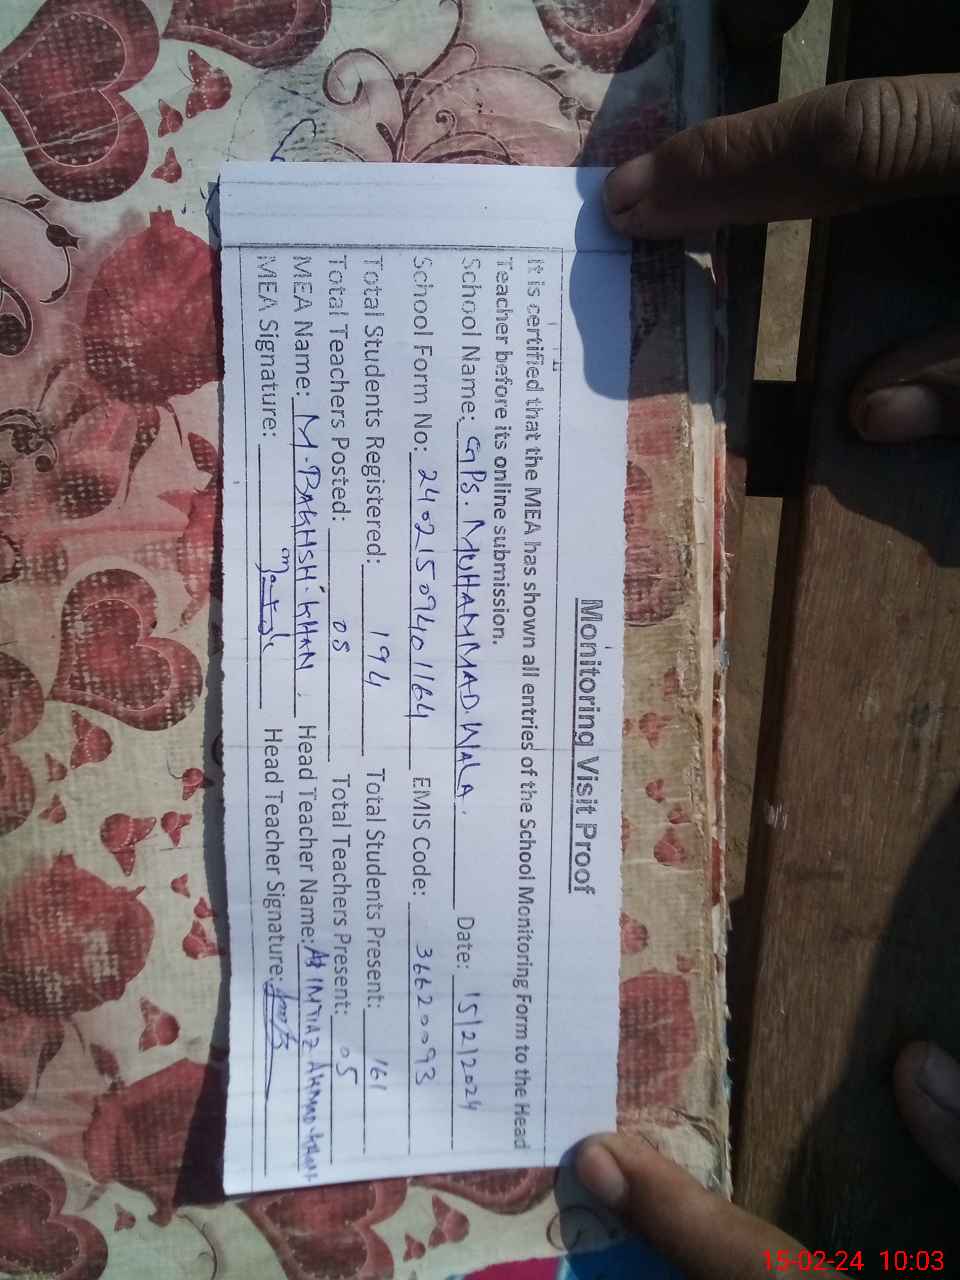 Monitoring Visit Proof
It is certified that the MEA has shown all entries of the School Monitoring Form to the Head
Teacher before its online submission.
School Name: GPS. MUHAMMAD. WALA. Date: 15/2/2024
School Form No: 24021509401164 EMIS Code: 36620093
Total Students Registered: 194 Total Students Present: 161
Total Teachers Posted: 05 Total Teachers Present: 05
MEA Name: M. BAKHSH. KHAN Head Teacher Name: IMTIAZ AHMAD
MEA Signature: Head Teacher Signature:
15-02-24 10:03